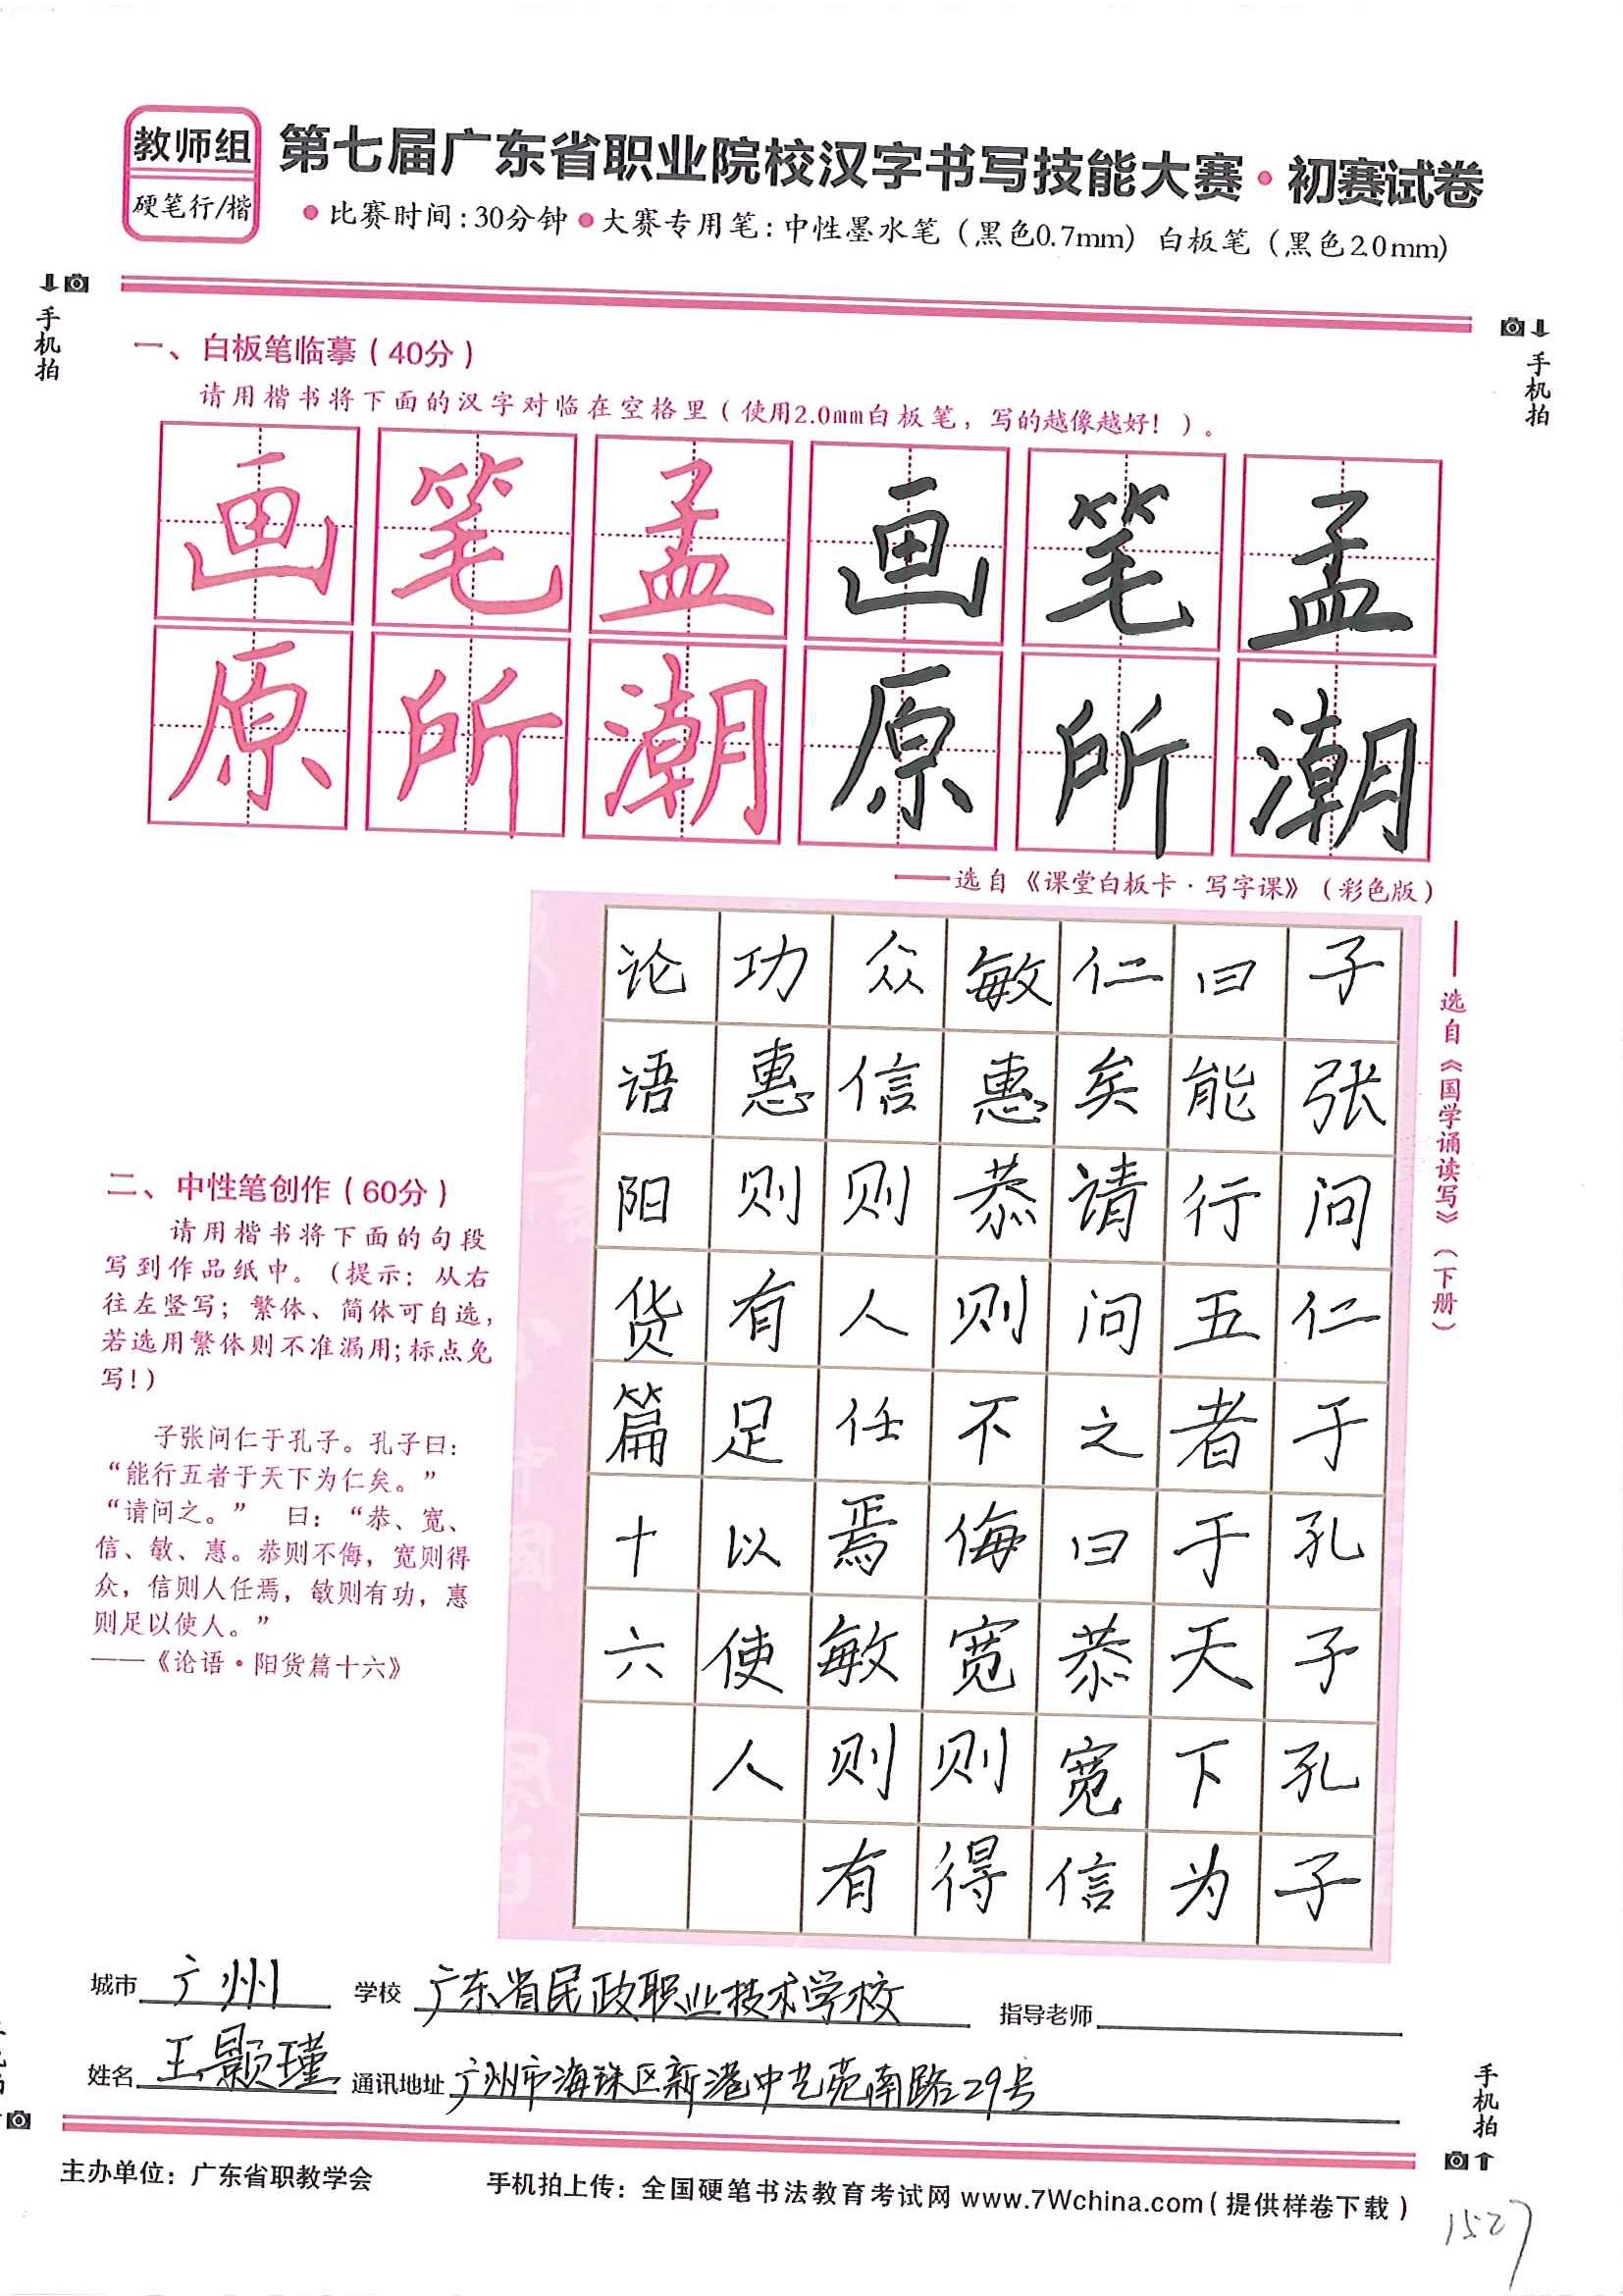 教师组
硬笔行/楷
第七届广东省职业院校汉字书写技能大赛·初赛试卷
●比赛时间:30分钟●大赛专用笔:中性墨水笔(黑色0.7mm)白板笔(黑色2.0mm)
手机拍
手机拍
一、白板笔临摹(40分)
请用楷书将下面的汉字对临在空格里(使用2.0mm白板笔,写的越像越好!)。
画笔孟画笔孟
原所潮原所潮
——选自《课堂白板卡·写字课》(彩色版)
——选自《国学诵读写》(下册)
子张问仁于孔子孔子
曰能行五者于天下为
仁矣请问之曰恭宽信
敏惠恭则不侮宽则得
众信则人任焉敏则有
功惠则有足以使人
论语阳货篇十六
二、中性笔创作(60分)
请用楷书将下面的句段
写到作品纸中。(提示:从右
往左竖写;繁体、简体可自选,
若选用繁体则不准漏用;标点免
写!)
子张问仁于孔子。孔子曰:
“能行五者于天下为仁矣。”
“请问之。” 曰:“恭、宽、
信、敏、惠。恭则不侮,宽则得
众,信则人任焉,敏则有功,惠
则足以使人。”
——《论语·阳货篇十六》
城市 广州 学校 广东省民政职业技术学校 指导老师
姓名 王颢瑾 通讯地址 广州市海珠区新港中艺苑南路29号
手机拍
主办单位:广东省职教学会 手机拍上传:全国硬笔书法教育考试网 www.7Wchina.com(提供样卷下载)
1527